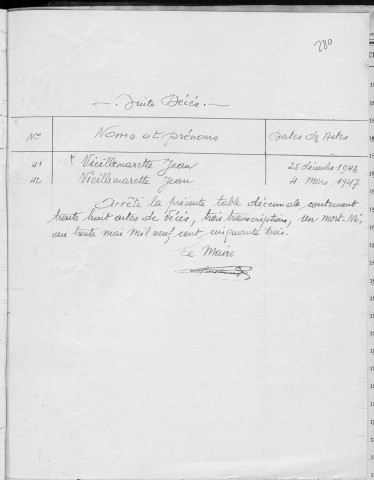 280
Suite Décés.
Nos Noms et prénoms Dates des Actes
41 Vieillemarette Jean 25 décembre 1946
42 Vieillemarette Jean 4 Mars 1947
Arrêté la présente table décennale contenant
trente huit actes de Décés, trois transcriptions, un mort-Né
au trente mai mil neuf cent cinquante trois.
Le Maire